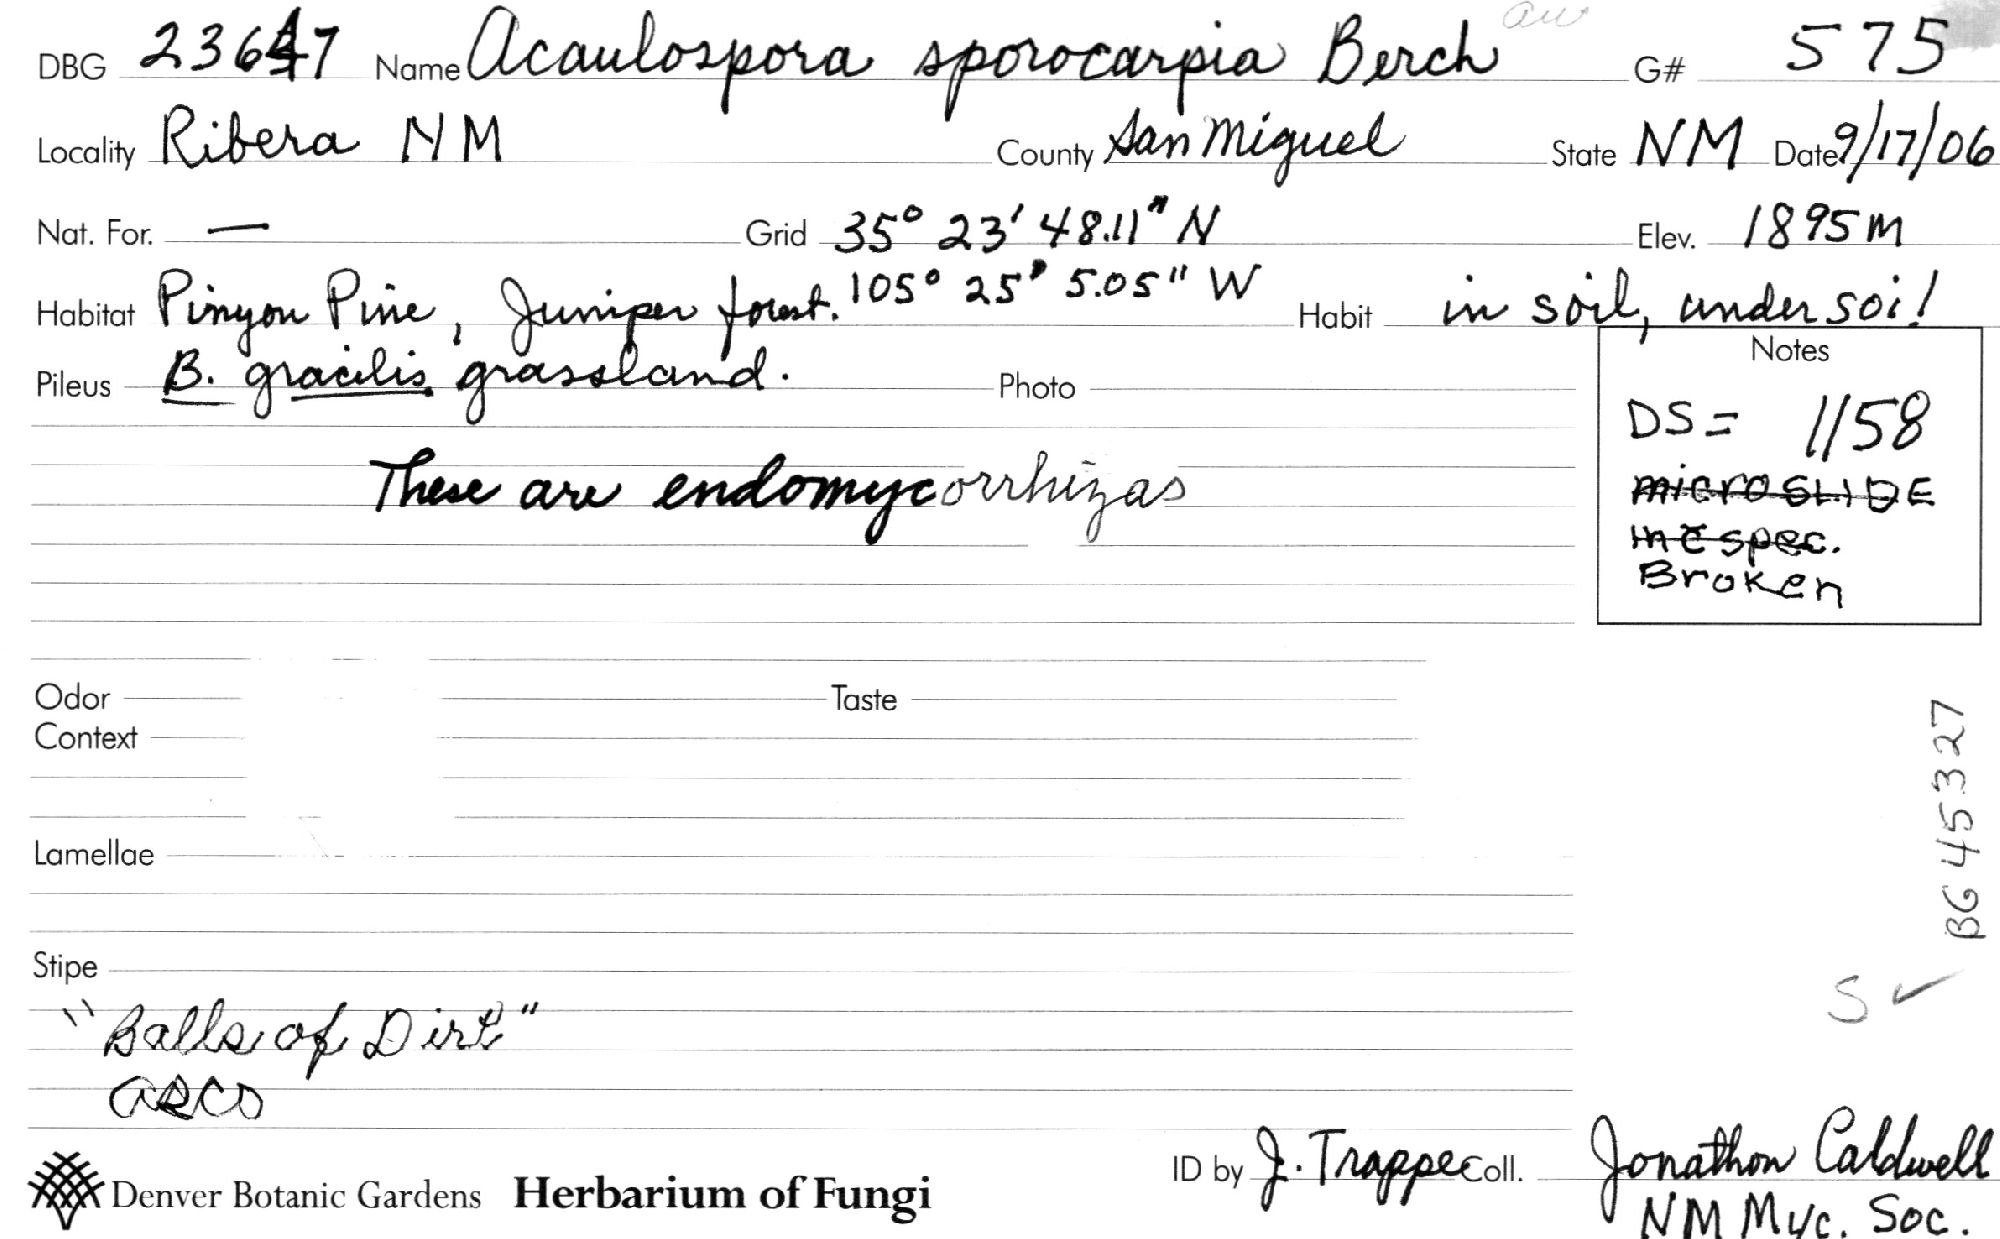 DBG 23647 Name Acaulospora sporocarpia Berch G# 575
Locality Ribera NM County San Miguel State NM Date 9/17/06
Nat. For. — Grid 35° 23' 48.11" N Elev. 1895m
Habitat Pinyon Pine, Juniper forest. 105° 25' 5.05" W Habit in soil, under soil
Pileus B. gracilis grassland. Photo
Notes
DS = 1158
These are endomycorrhizas
microSLIDE
in c̄ spec.
Broken
Odor Taste
Context
Lamellae
BG 45327
Stipe
S ✓
"Balls of Dirt"
asco
ID by J. Trappe Coll. Jonathon Caldwell
Denver Botanic Gardens Herbarium of Fungi
NM Myc. Soc.